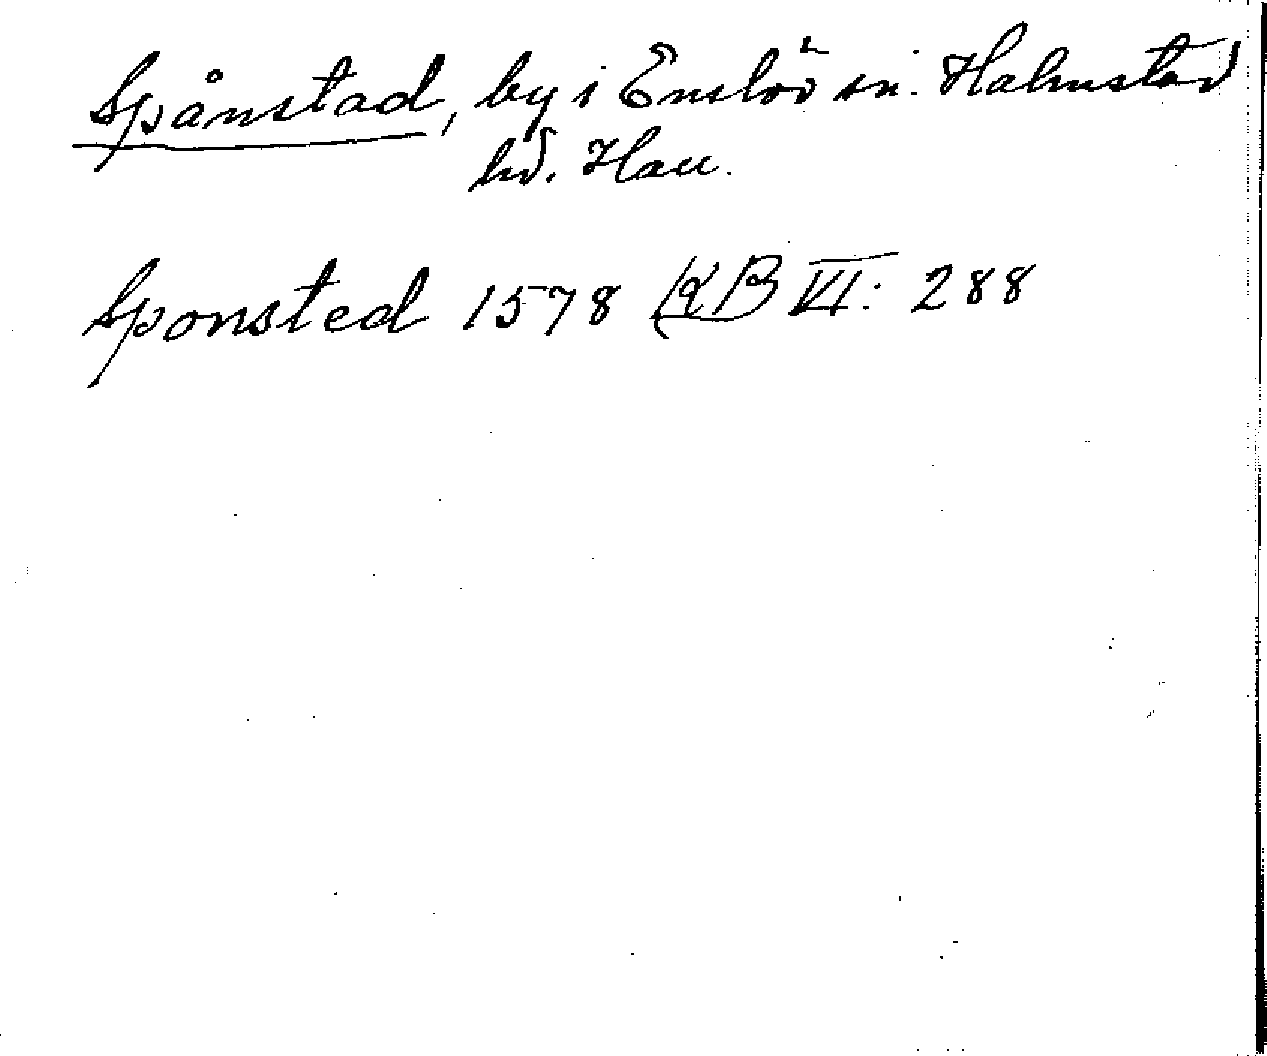 Spånstad, by i Enslöv sn. Halmstad
hd. Hall.
Sponsted 1578 KB VI: 288